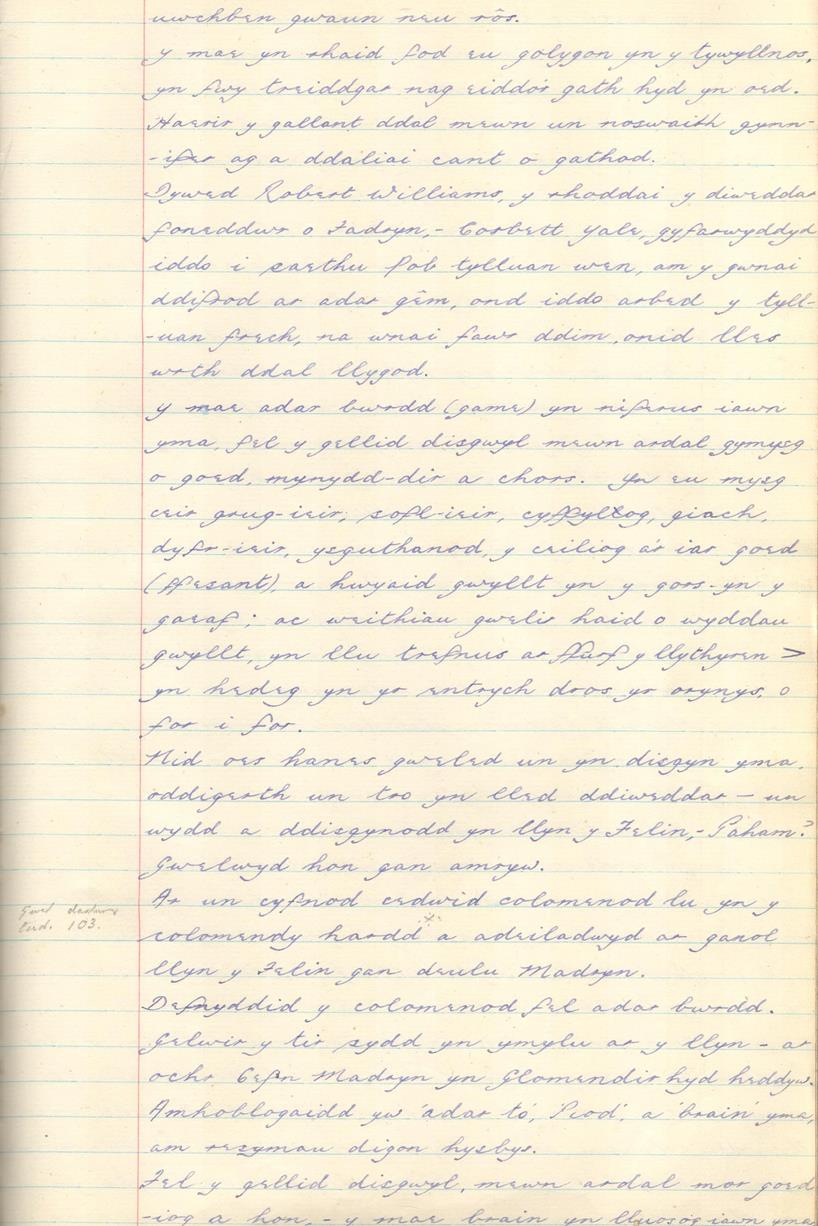 uwchben gwaun neu rôs.
Y mae yn rhaid fod eu golygon yn y tywyllnos,
yn fwy treiddgar nag eiddo'r gath hyd yn oed.
Haerir y gallant ddal mewn un noswaith gynn-
-ifer ag a ddaliai cant o gathod.
Dywed Robert Williams, y rhoddai y diweddar
foneddwr o Fadryn,- Corbett Yale, gyfarwyddyd
iddo i saethu pob tylluan wen, am y gwnai
ddifrod ar adar gêm, ond iddo arbed y tyll-
-uan frech, na wnai fawr ddim, onid lles
wrth ddal llygod.
Y mae adar bwrdd (game) yn niferus iawn
yma, fel y gellid disgwyl mewn ardal gymysg
o goed, mynydd-dir a chors. Yn eu mysg
ceir grug-ieir, sofl-ieir, cyffyllog, giach,
dyfr-ieir, ysguthanod, y ceiliog a'r iar goed
(ffesant), a hwyaid gwyllt yn y gors-yn y
gaeaf; ac weithiau gwelir haid o wyddau
gwyllt, yn llu trefnus ar ffurf y llythyren >
yn hedeg yn yr entrych dros yr orynys, o
for i for.
Nid oes hanes gweled un yn disgyn yma,
oddigerth un tro yn lled ddiweddar — un
wydd a ddisgynodd yn llyn y Felin,- Paham?
Gwelwyd hon gan amryw.
Ar un cyfnod cedwid colomenod lu yn y
colomendy hardd a adeiladwyd ar ganol
llyn y Felin gan deulu Madryn.
Defnyddid y colomenod fel adar bwrdd.
Gelwir y tir sydd yn ymylu ar y llyn - ar
ochr Cefn Madryn yn Glomendir hyd heddyw.
Amhoblogaidd yw 'adar to', 'Piod', a 'brain' yma,
am resymau digon hysbys.
Fel y gellid disgwyl, mewn ardal mor goed
-iog a hon,- y mae brain yn lluosog iawn yma
tud. 103.